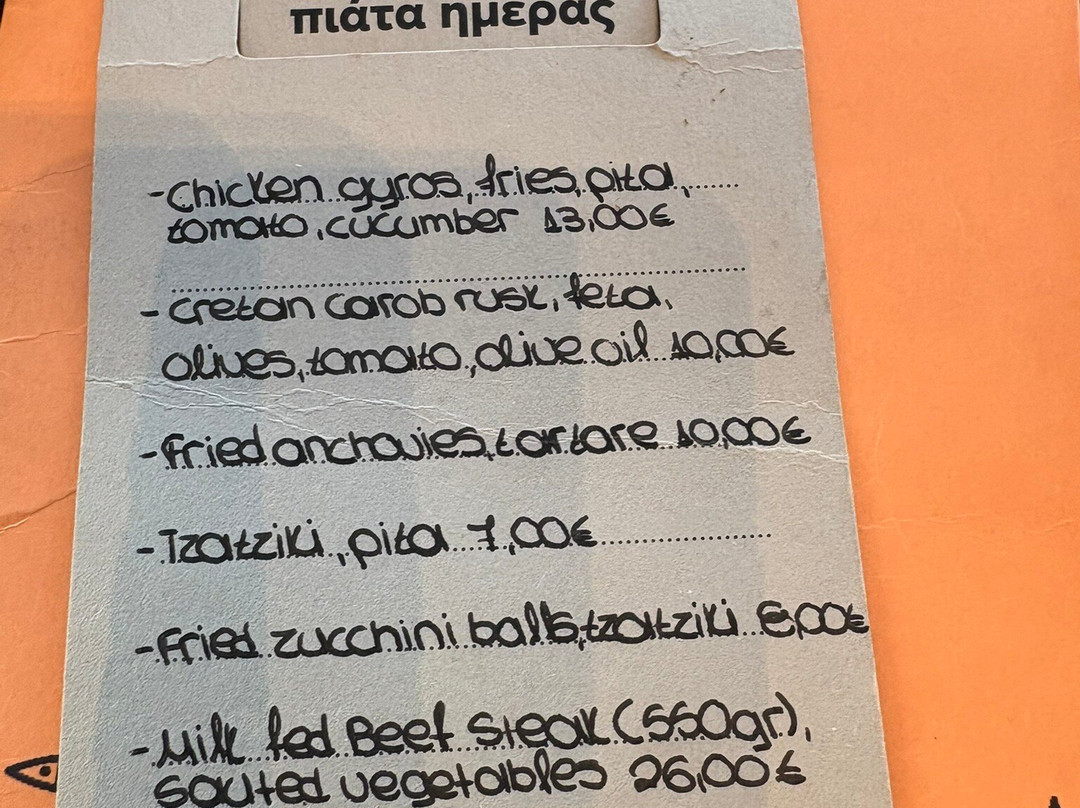 πιάτα ημέρας
-Chicken gyros, fries, pita,
tomato, cucumber 13,00€
-Cretan carob rusk, feta,
olives, tomato, olive oil 10,00€
-Fried anchovies, tartare 10,00€
-Tzatziki, pita 7,00€
-Fried zucchini balls, tzatziki 8,00€
-Milk fed Beef Steak (550gr),
sauted vegetables 26,00€